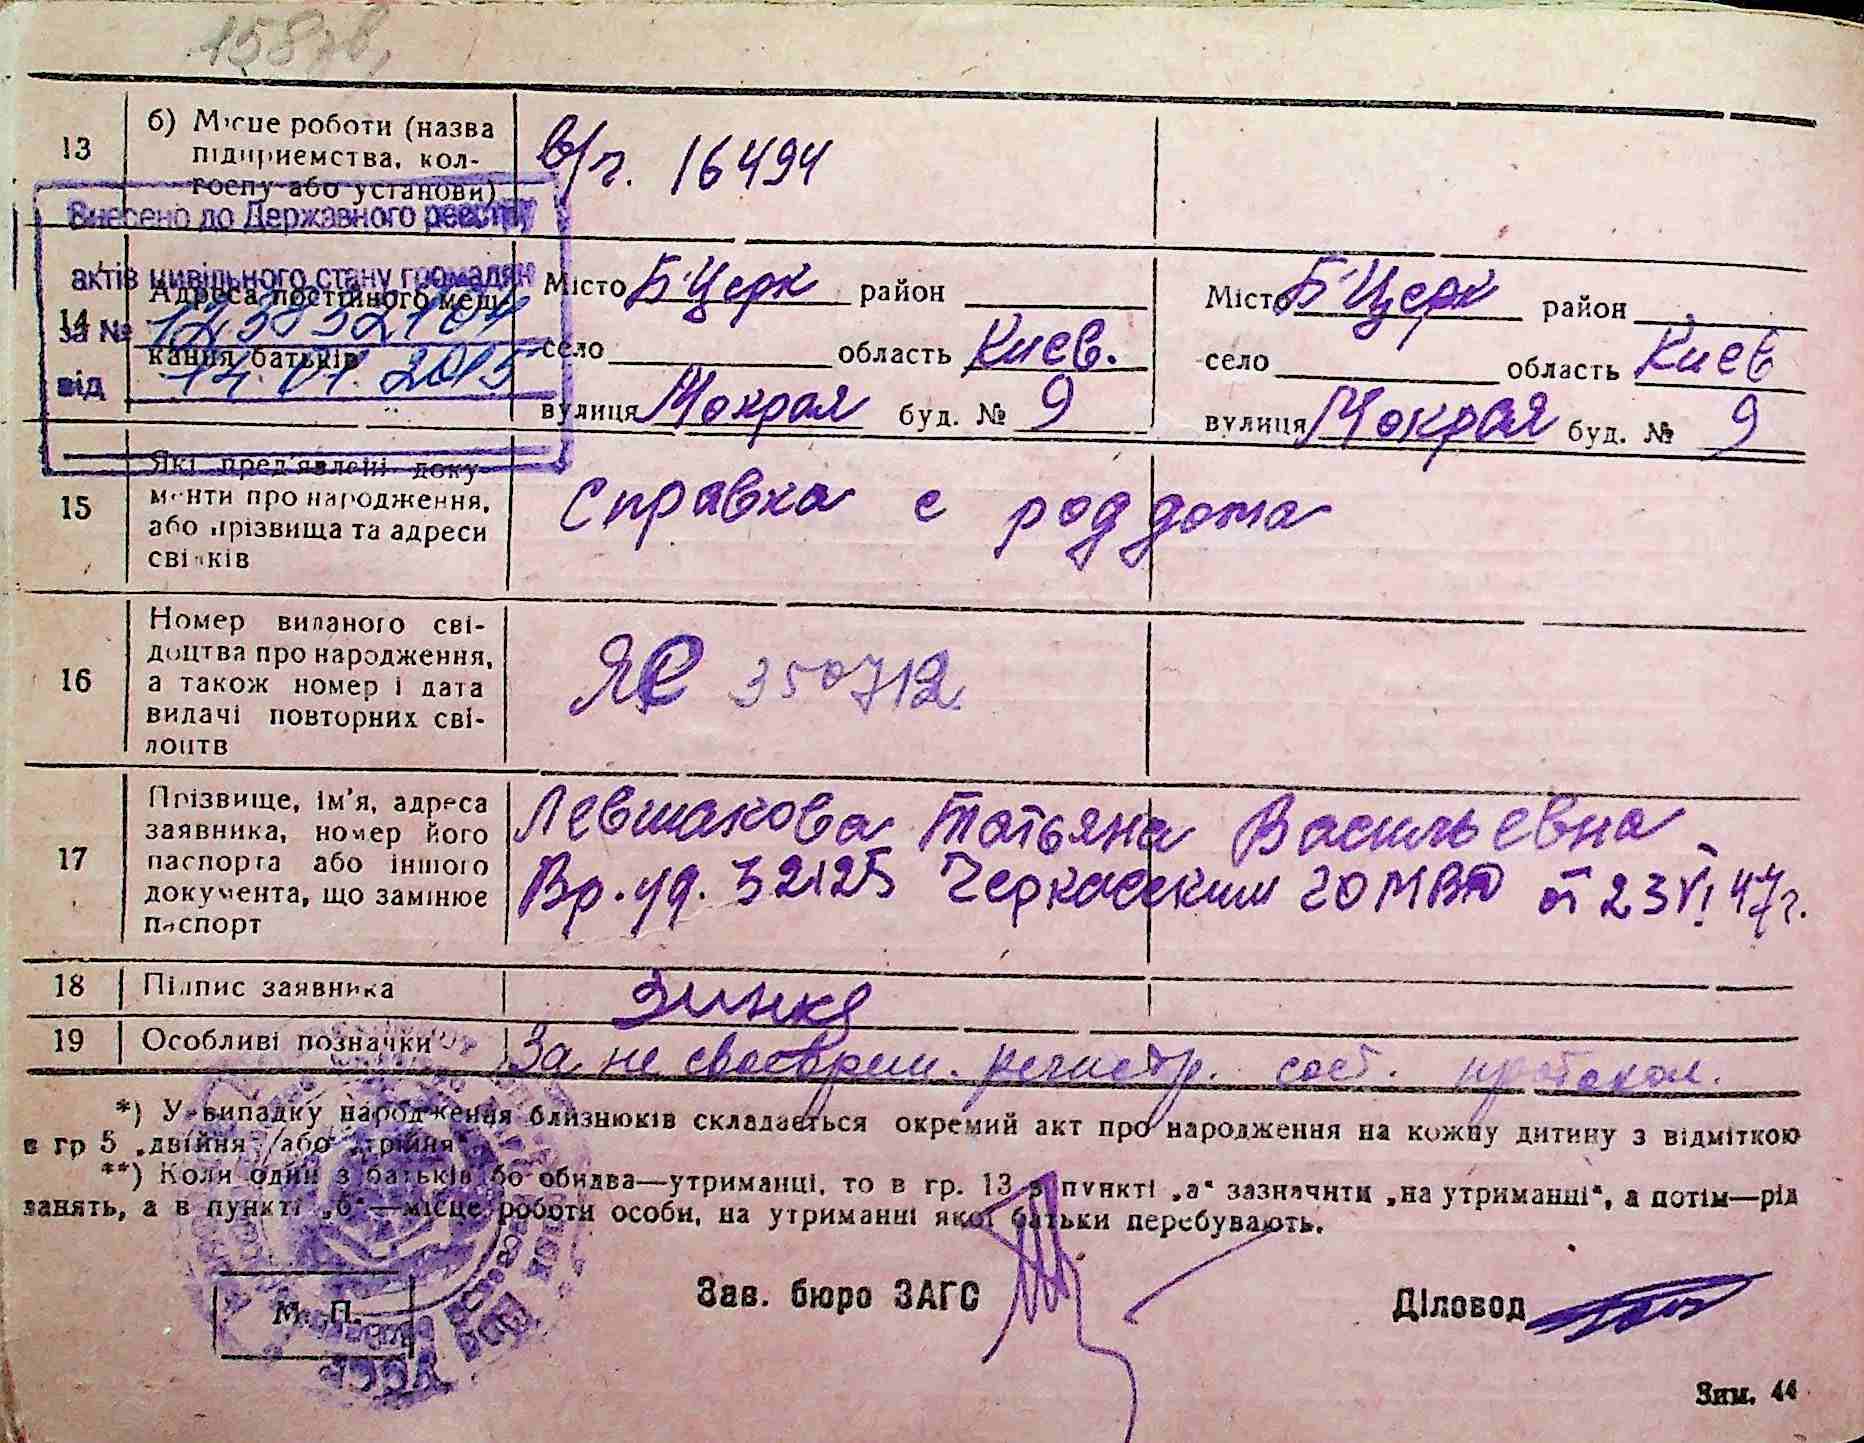 158
13 б) Місце роботи (назва підприємства, колгоспу або установи) в/ч. 16494
Внесено до Державного реєстру
актів цивільного стану громадян
за №
від 14.01.2015
14 Адреса постійного мешкання батьків
Місто Б-Церк район Місто Б-Церк район
село область Киев. село область Киев
вулиця Мокрая буд. № 9 вулиця Мокрая буд. № 9
15 Які пред'явлені документи про народження, або прізвища та адреси свідків Справка с роддома
16 Номер виданого свідоцтва про народження, а також номер і дата видачі повторних свідоцтв ЯС 350712
17 Прізвище, ім'я, адреса заявника, номер його паспорта або іншого документа, що замінює паспорт
Левшакова Татьяна Васильевна
Вр. уд. 32125 Черкасским ГОМВД от 23 VI 47 г.
18 Підпис заявника
19 Особливі позначки За не своеврем. регистр. сост. протокол.
*) У випадку народження близнюків складається окремий акт про народження на кожну дитину з відміткою
в гр 5 „двійня“, або „трійня“.
**) Коли один з батьків бо обидва—утриманці, то в гр. 13 в пункті „а“ зазначити „на утриманні“, а потім—рід
занять, а в пункті „б“—місце роботи особи, на утриманні якої батьки перебувають.
М. П.
УССР
Зав. бюро ЗАГС
Діловод
Зим. 44